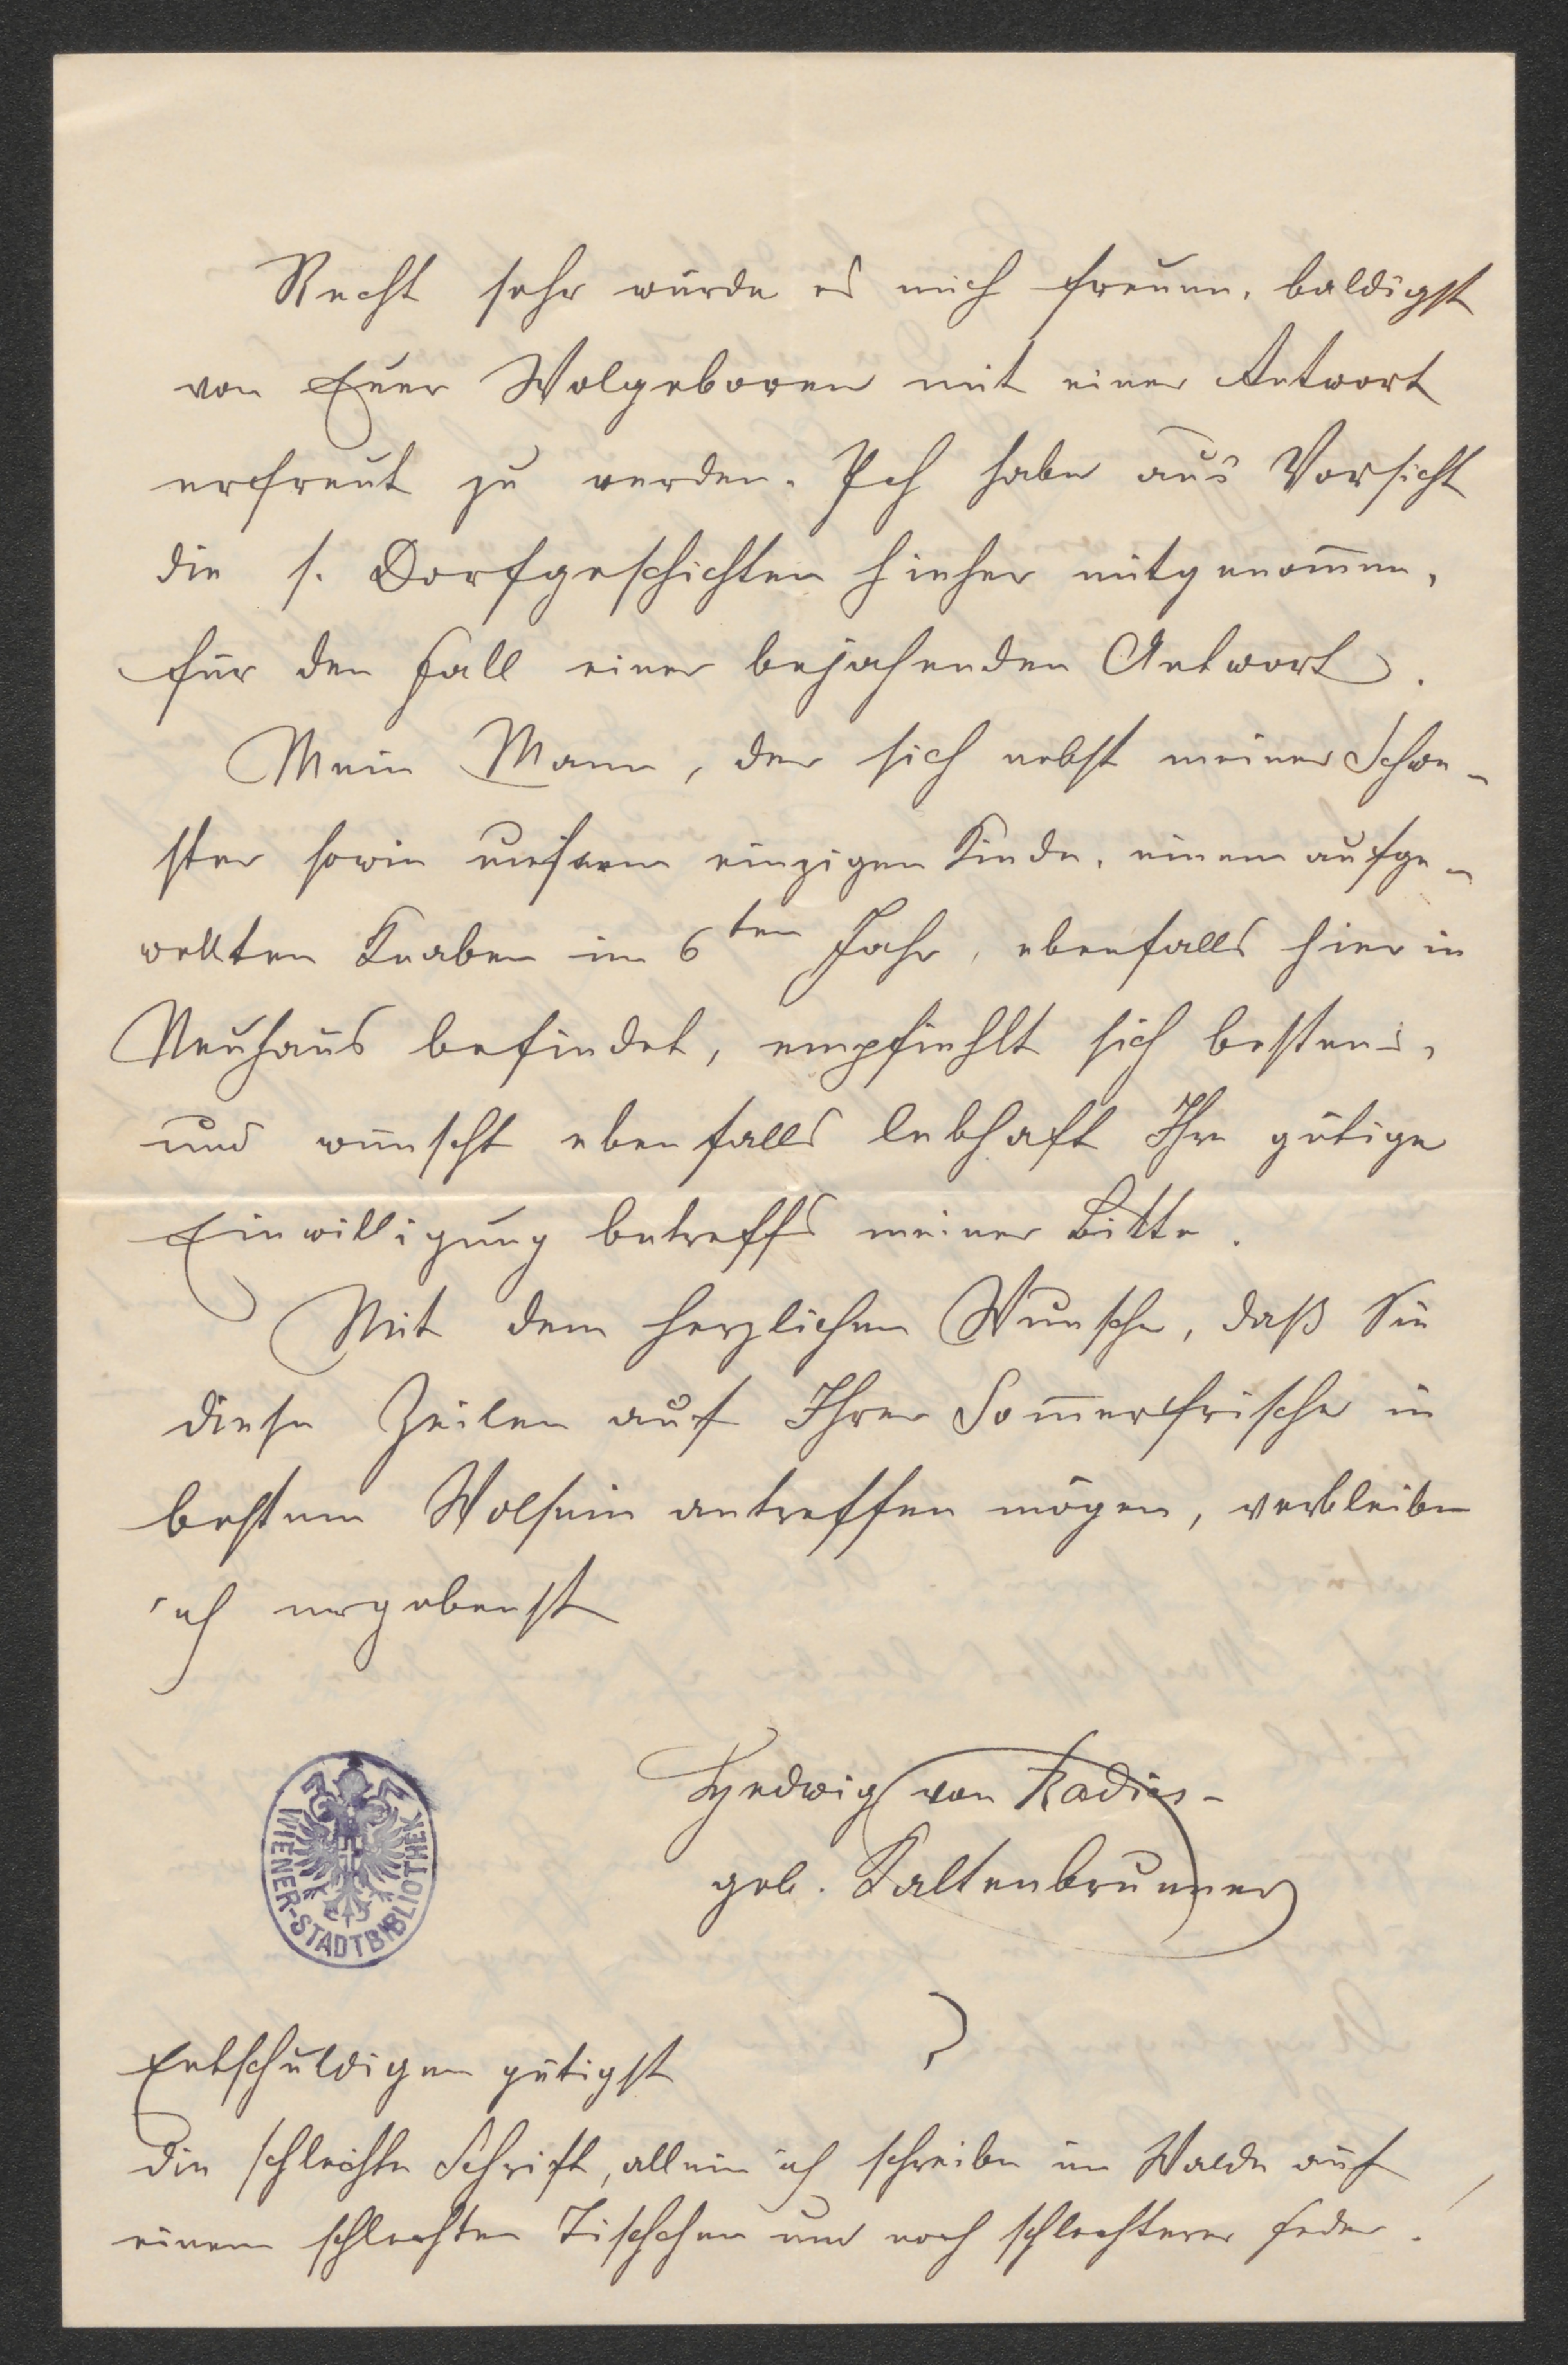 Recht sehr würde es mich freuen, baldigst
von Euer Wolgeboren mit einer Antwort
erfreut zu werden. Ich habe aus Vorsicht
die s. Dorfgeschichten hieher mitgenom̅en,
für den Fall einer bejahenden Antwort.
Mein Mann, der sich nebst meiner Schwe-
ster sowie unserem einzigen Kinde, einem aufge-
wekten Knaben im 6ten Jahr, ebenfalls hier in
Neuhaus befindet, empfiehlt sich bestens,
und wünscht ebenfalls lebhaft Ihre gütige
Einwilligung betreffs meiner Bitte.
Mit dem herzlichen Wunsche, daß Sie
diese Zeilen auf Ihrer Som̅erfrische in
bestem Wolsein antreffen mögen, verbleibe
ich ergebenst
Hedwig von Radics-
geb. Kaltenbrunner
WIENER-STADTBIBLIOTHEK
Entschuldigen gütigst
die schlechte Schrift, allein ich schreibe im Walde auf
einem schlechten Tischchen und noch schlechterer Feder!